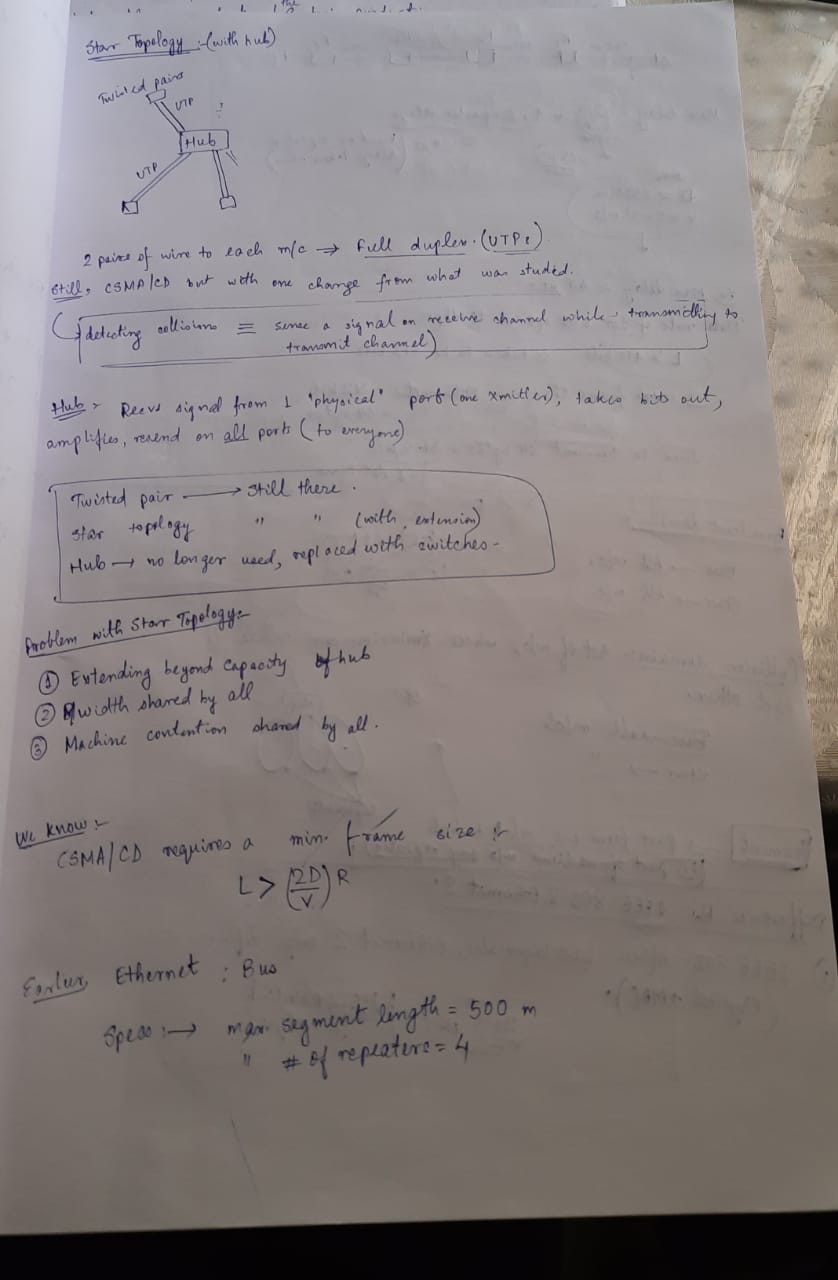 Star Topology :- (with hub)
Twisted pairs
UTP
Hub
UTP
2 pairs of wire to each m/c ⇒ Full duplex. (UTPs)
Still, CSMA/CD but with one change from what was studed.
(detecting collisions ≡ sense a signal on receive channel while transmitting to
transmit channel)
Hub :- Recvs signal from 1 "physical" port (one xmitter), takes bits out,
amplifies, resend on all ports (to everyone)
Twisted pair → Still there.
Star topology " " (with extension)
Hub → no longer used, replaced with switches -
Problem with Star Topology:-
① Extending beyond capacity of hub
② width shared by all
③ Machine contention shared by all.
We know :-
CSMA/CD requires a min. frame size :-
L > (2D/V) R
Earlier, Ethernet : Bus
Specs :→ max. segment length = 500 m
" # of repeaters = 4